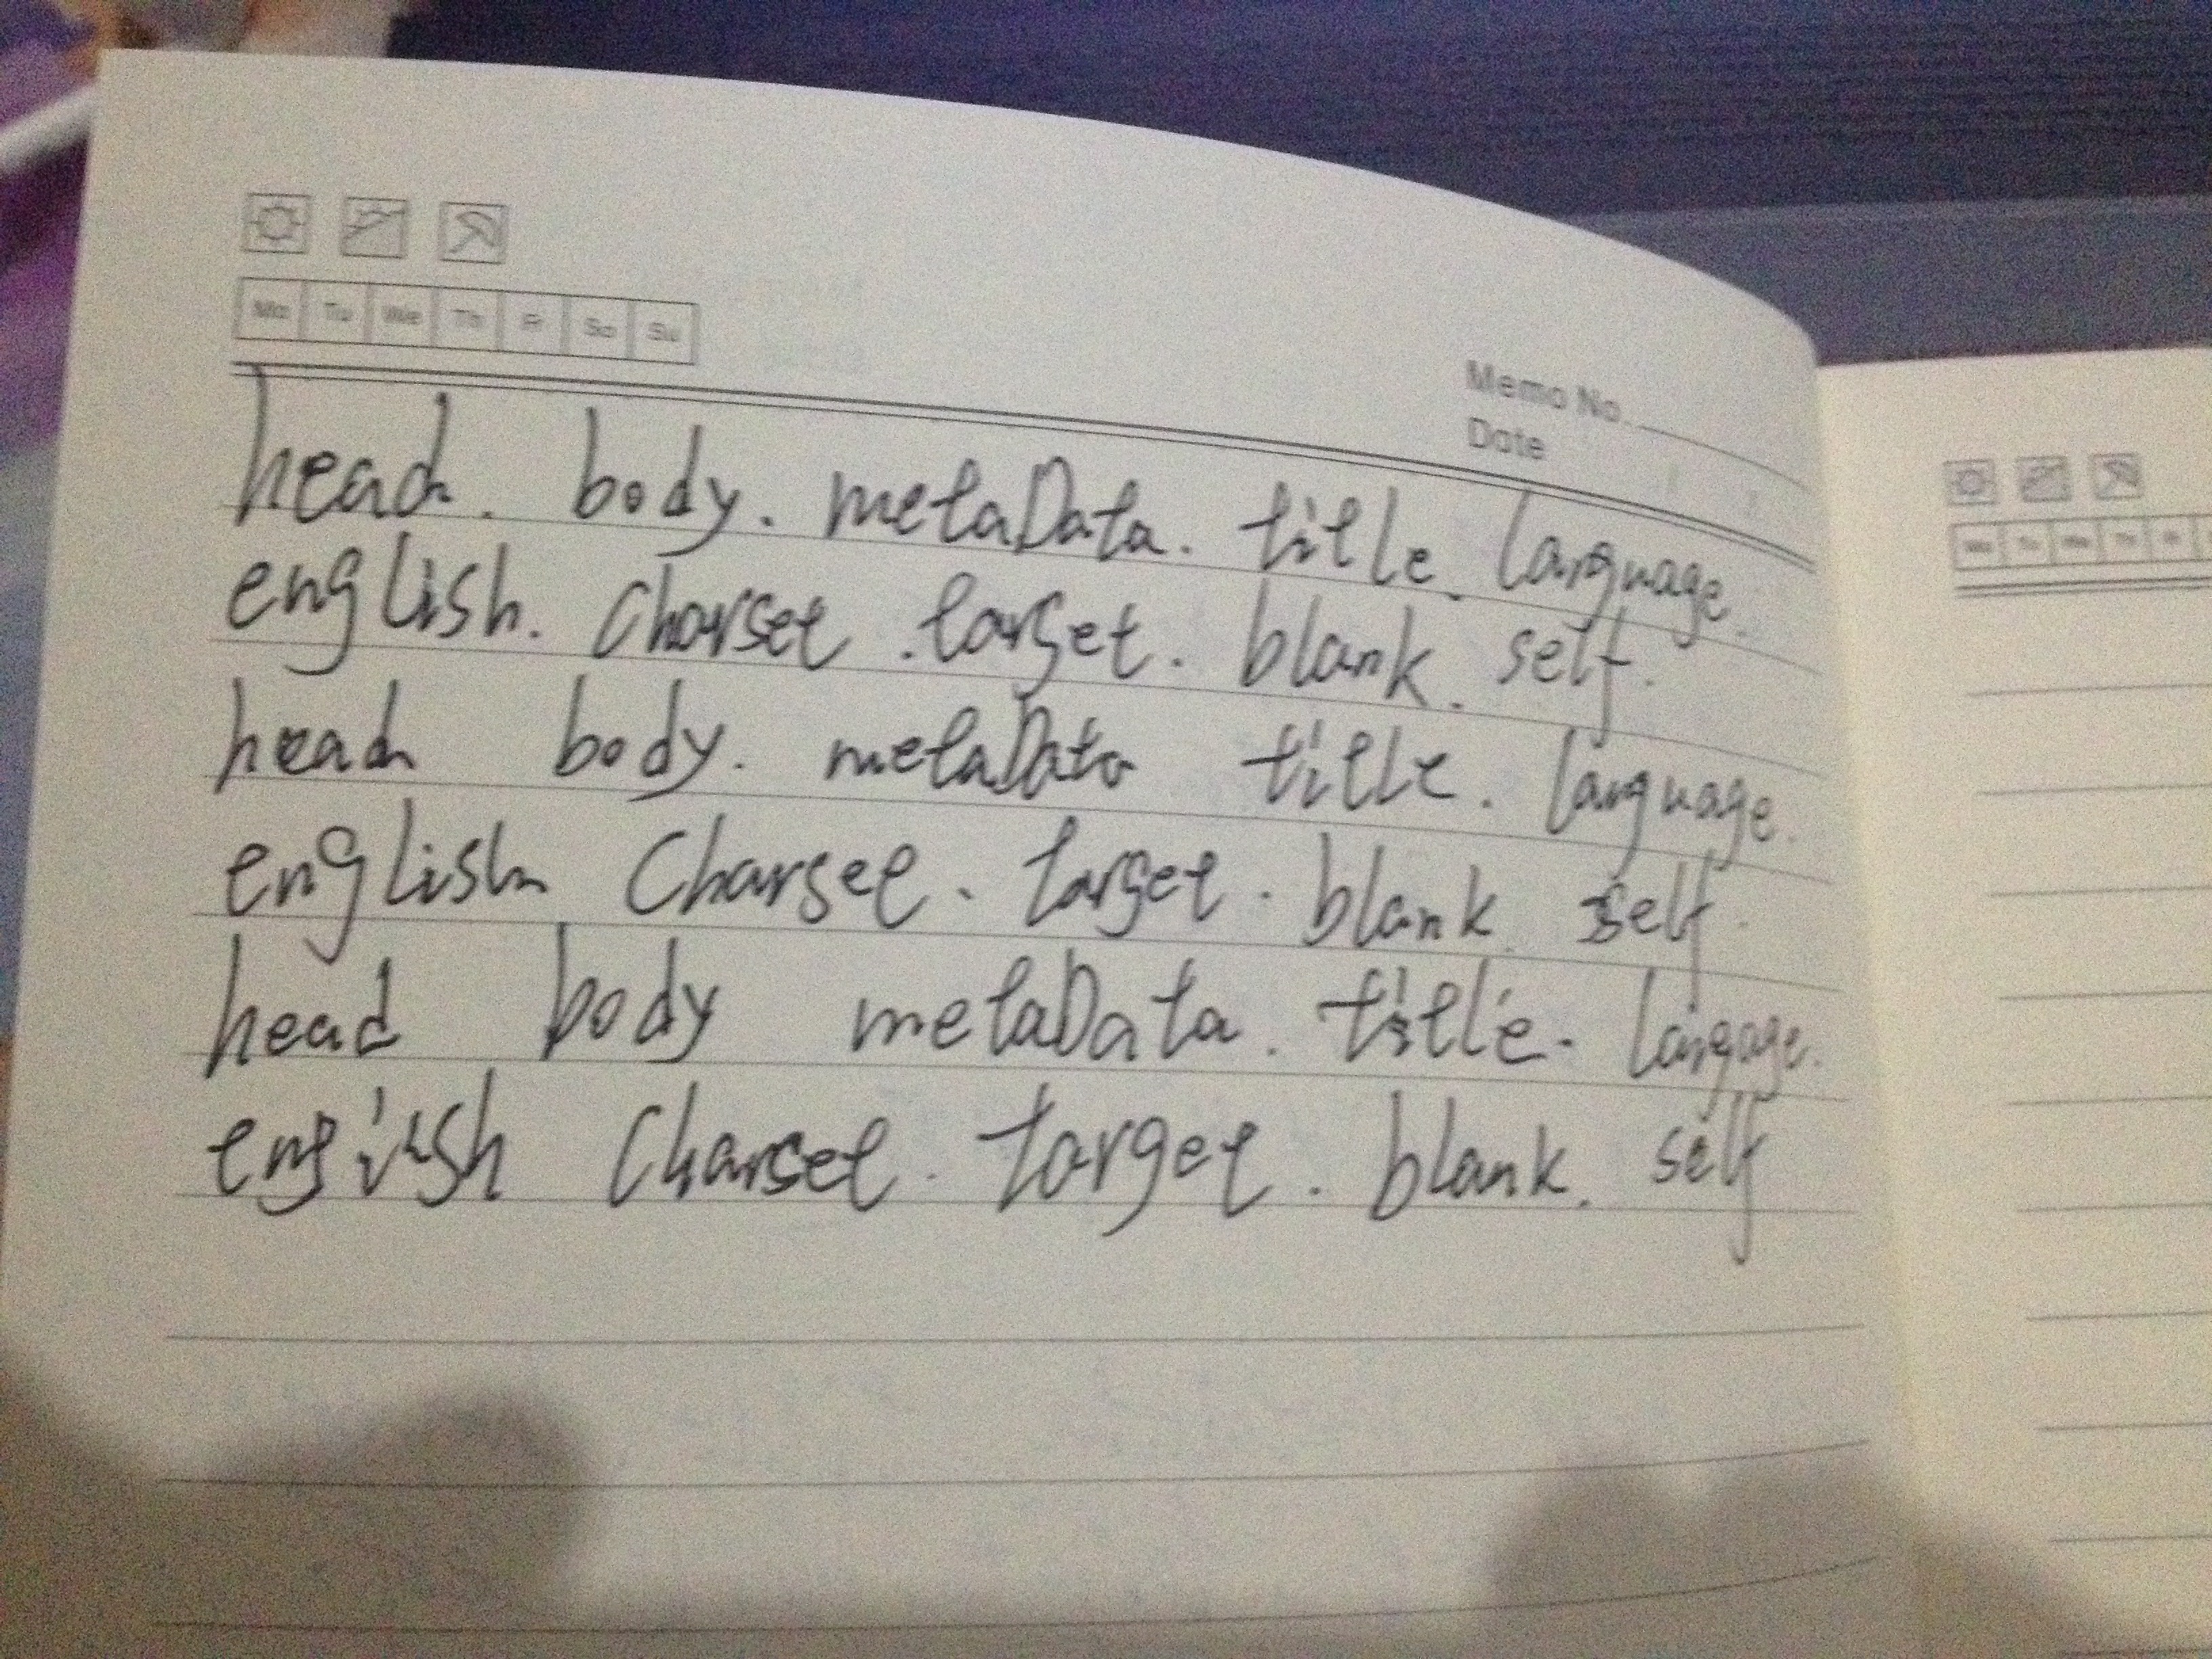 Mo Tu We Th Fr Sa Su
Memo No.
Date
head. body. metaData. title. language.
english. charset. target. blank. self.
head body. metaData title. language.
english charset. target. blank. self.
head body metaData. title. langage.
charset. target. blank. self